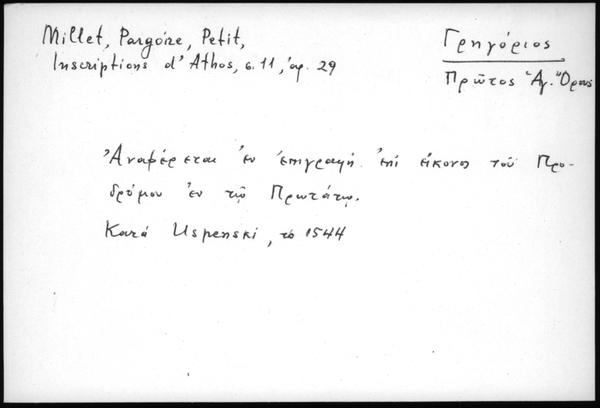 Millet, Pargoire, Petit,
Inscriptions d'Athos, σ. 11, ἀρ. 29
Γρηγόριος
Πρῶτος Ἁγ. Ὄρους
Ἀναφέρεται ἐν ἐπιγραφῇ ἐπὶ εἰκονος τοῦ Προ-
δρόμου ἐν τῷ Πρωτάτῳ.
Κατά Uspenski, τὸ 1544